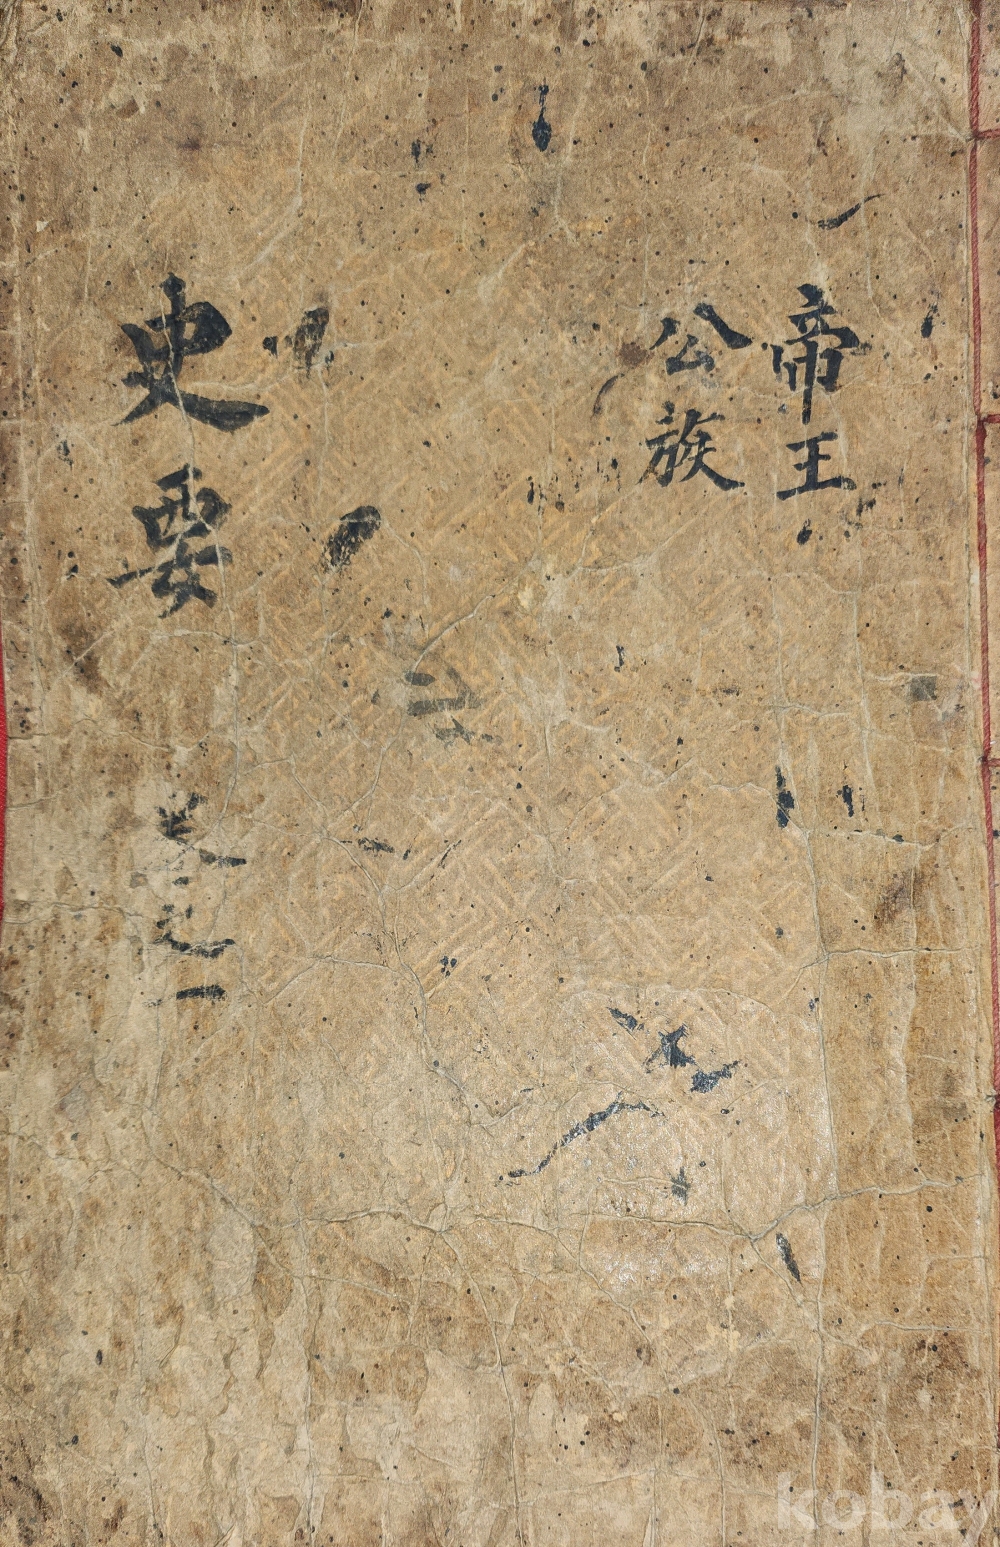 帝王
公族
史要
卷之一
kobay